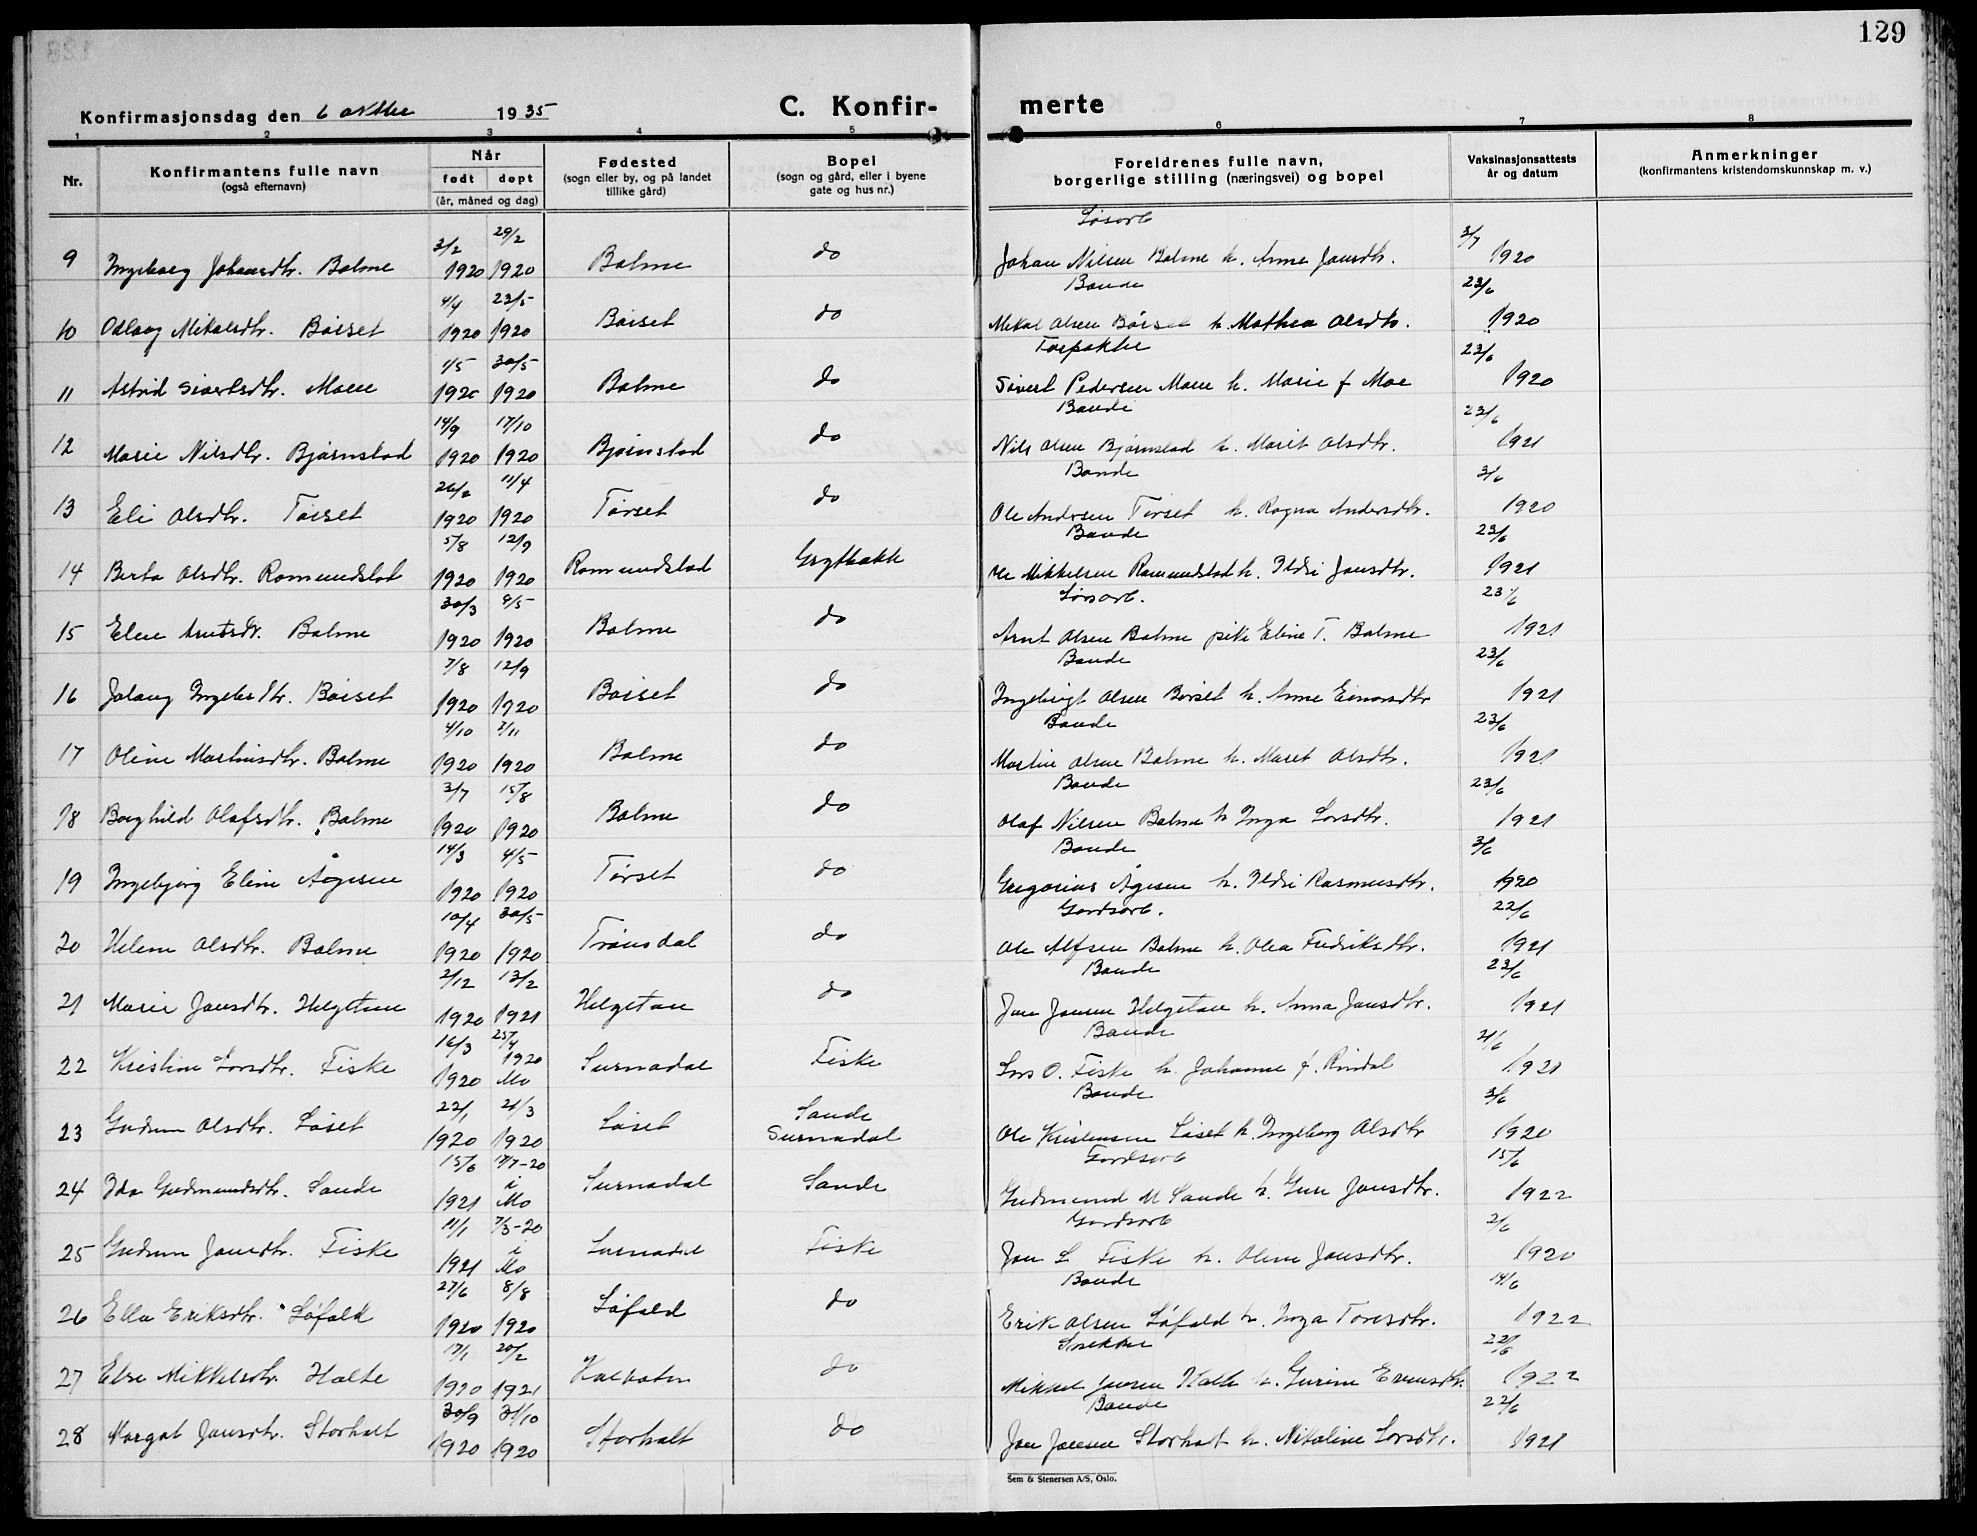 129
Konfirmasjonsdag den 6 oktbr 1935
C. Konfir- merte
1 2 3 4 5 6 7 8
Nr.
Konfirmantens fulle navn
(også efternavn)
Når
født døpt
(år, måned og dag)
Fødested
(sogn eller by, og på landet
tillike gård)
Bopel
(sogn og gård, eller i byene
gate og hus nr.)
Foreldrenes fulle navn,
borgerlige stilling (næringsvei) og bopel
Vaksinasjonsattests
år og datum
Anmerkninger
(konfirmantens kristendomskunnskap m. v.)
29/2 3/7
9 Ingeborg Johansdtr. Bolme 1920 1920 Bolme do Johan Nilsen Bolme h. Anne Jonsdtr. 1920
4/4 23/5 Bonde 23/6
10 Oslaug Mikalsdtr. Bøiset 1920 1920 Bøiset do Mikal Olsen Bøiset h. Mathea Olsdtr. 1920
1/5 30/5 Forpakter 23/6
11 Astrid Sivertsdtr. Moen 1920 1920 Bolme do Sivert Pedersen Moen h. Marie f Moe 1920
14/9 17/10 Bonde 23/6
12 Marie Nilsdtr. Bjørnstad 1920 1920 Bjørnstad do Nils Olsen Bjørnstad h. Marit Olsdtr. 1921
26/2 11/4 Bonde 3/6
13 Eli Olsdtr. Tørset 1920 1920 Tørset do Ole Andersen Tørset h. Ragna Andersdtr. 1920
5/8 12/9 Bonde 23/6
14 Berta Olsdtr. Romundstad 1920 1920 Romundstad Ole Mikkelsen Romundstad h. Ildri Jonsdtr. 1921
30/3 9/5 23/6
15 Elen Arntsdtr. Bolme 1920 1920 Bolme do Arnt Olsen Bolme pike Eline T. Bolme 1921
7/8 12/9 Bonde 23/6
16 Bøiset 1920 1920 Bøiset do Ingebrigt Olsen Bøiset h. Anne Einarsdtr 1921
4/10 7/11 Bonde 23/6
17 Oline Martinsdtr. Bolme 1920 1920 Bolme do Martin Olsen Bolme h. Maret Olsdtr. 1921
3/7 15/8 Bonde 23/6
18 Borghild Olafsdtr. Bolme 1920 1920 Bolme do Olaf Nilsen Bolme h Inga Larsdtr. 1921
14/3 4/5 Bonde 3/6
19 Ingebjørg Eline Ågesen 1920 1920 Tørset do Gregorius Ågesen h. Ildri Rasmusdtr. 1920
10/4 30/5 Gardsarb. 22/6
20 Helene Olsdtr. Bolme 1920 1920 Trønsdal do Ole Alfsen Bolme h. Olea Fredriksdtr. 1921
2/12 13/2 Bonde 23/6
21 Marie Jonsdtr. Helgetun 1920 1921 Helgetun do Jon Jonsen Helgetun h. Anna Jonsdtr. 1921
16/3 25/4 Bonde 21/6
22 Kristine Larsdtr. Fiske 1920 1920 Mo Surnadal Fiske Lars O. Fiske h. Johanne f. Rindal 1921
22/1 21/3 Bonde 3/6
23 Gudrun Olsdtr. Løset 1920 1920 Løset Sande Surnadal Ole Kristensen Løset h. Ingeborg Olsdtr 1920
15/6 17/7-20 Gardsarb 15/6
24 Ida Gudmundsdtr. Sande 1921 i Mo Surnadal Sande Gudmund M Sande h. Guru Jonsdtr. 1922
11/1 7/3-20 Gardsarb 2/6
25 Gudrun Jonsdtr. Fiske 1921 i Mo Surnadal Fiske Jon L Fiske h. Oline Jonsdtr. 1920
27/6 8/8 Bonde 14/6
26 Ella Eriksdtr. Løfald 1920 1920 Løfald do Erik Olsen Løfald h. Inga Toresdtr. 1922
17/1 20/2 Snekker 22/6
27 Else Mikkelsdtr. Halte 1920 1921 do Mikkel Jonsen Halle h. Gurine Evensdtr. 1922
30/9 31/10 Bonde 22/6
28 Margot Jonsdtr. Storholt 1920 1920 Storholt do Jon Jonsen Storholt h. Nikoline Larsdtr. 1921
Sem & Stenersen A/S, Oslo.